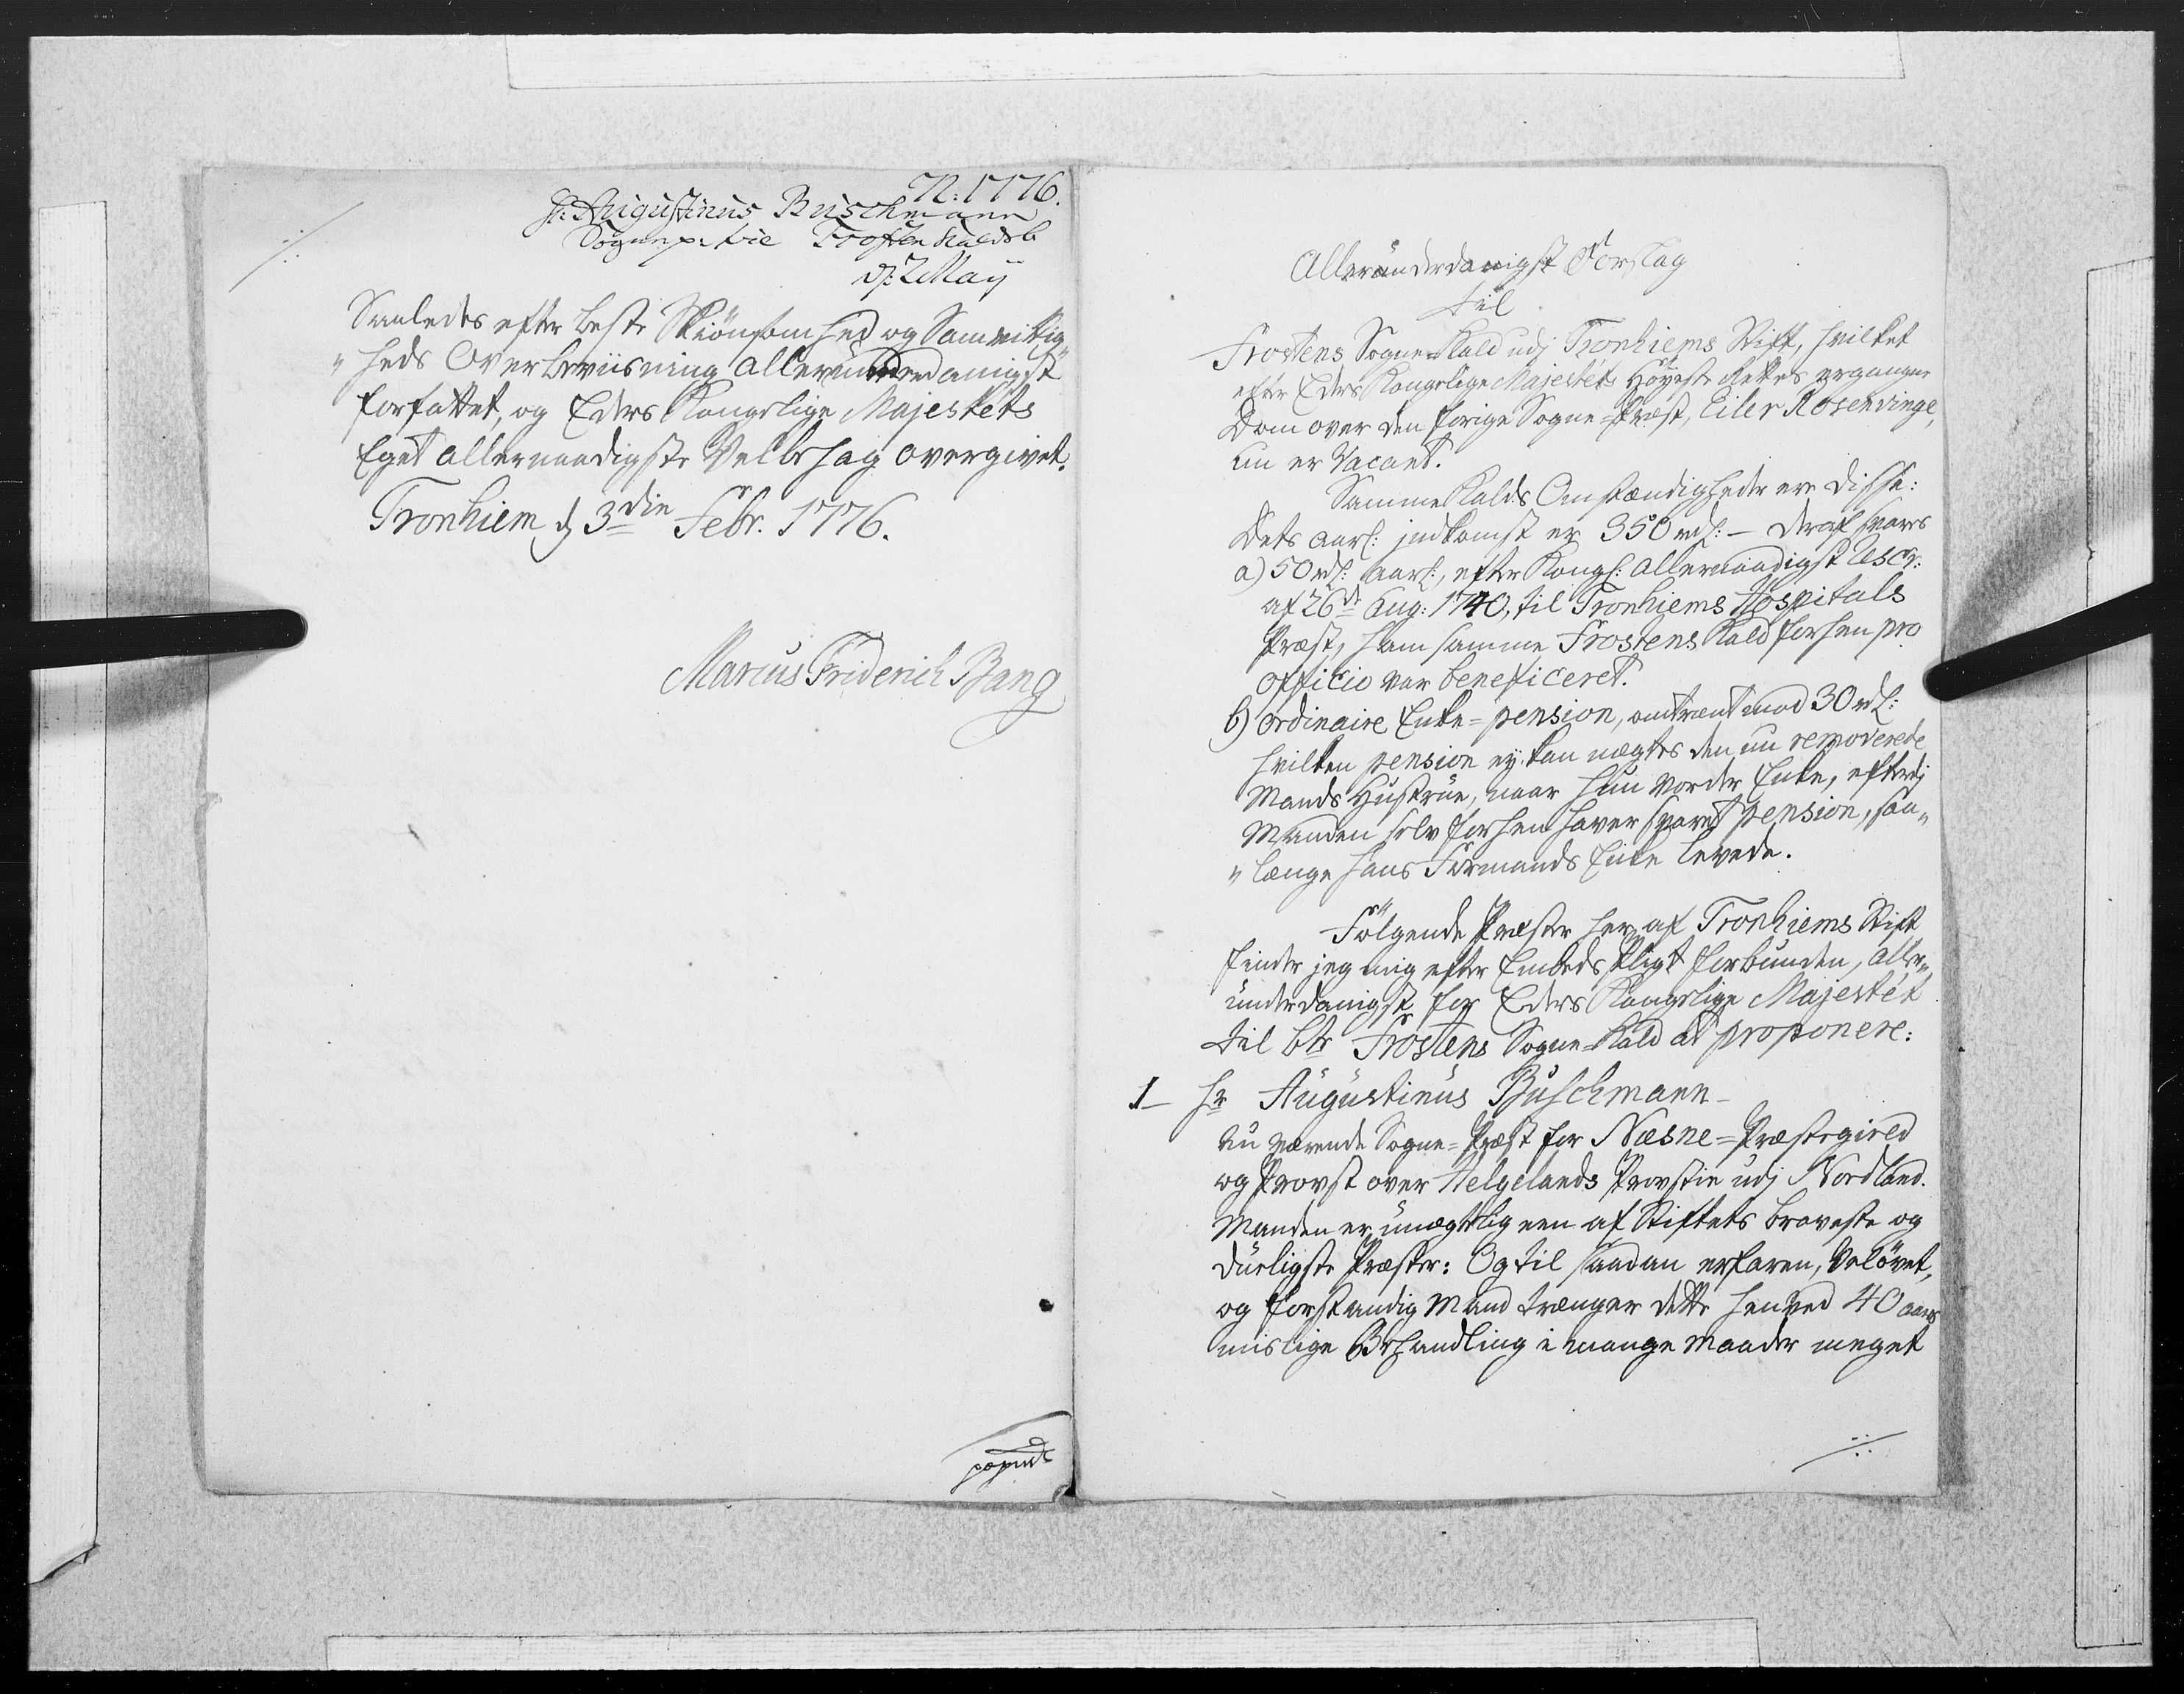 N: 1776.
Hr: Augustinus Buschmann
Sognepr: til Frosten Kald
d: 2 Maij
Saaledes efter beste Skiönsomhed og Samvittig„
„heds Overbeviisning allerunderdanigst
forfattet, og Eders Kongelige Majestets
Eget allernaadigste Velbehag overgivet.
Tronhiem d 3die Febr. 1776.
Marcus Friderich Bang
Allerunderdanigst Forslag
til
Frostens Sogne-Kald udj Tronhiems Stift, hvilket
efter Eders Kongelige Majestets Höyeste Rettes ergangne
Dom over den forige Sogne-Præst, Eiler Rosenvinge,
nu er Vacant.
Samme Kalds Omstændigheder ere disse:
Dets aarl: jndkomst er 350 rdl: – deraf svares
a) 50 rdl: aarl:, efter Kongl: allernaadigst Rescr:
af 26de Aug: 1740, til Tronhiems Hospitals
Præst, ham samme Frostens Kald forhen pro
officio var beneficeret.
b) ordinaire Enke-pension, omtrent mod 30 rdl:
hvilken pension ey kan nægtes den nu removerede
Mands Hustrue, naar hun vorder Enke, efterdj
Manden selv forhen haver svaret pension, saa„
„længe hans Formands Enke levede.
Fölgende Præster her af Tronhiems Stift
finder jeg mig efter Embeds Pligt forbunden, aller„
underdanigst for Eders Kongelige Majestet
til bte Frostens Sogne-Kald at proponere:
1 – Hr Augustinus Buschmann –
nu værende Sogne-Præst for Næsne-Præstegield
og Provst over Helgelands Provstie udj Nordland.
Manden er unægtelig een af Stiftets braveste og
dueligste Præster: Og til saadan erfaren, Velövet,
og forstandig Mand trænger dette henved 40 aars
mislige Behandling i mange Maader meget